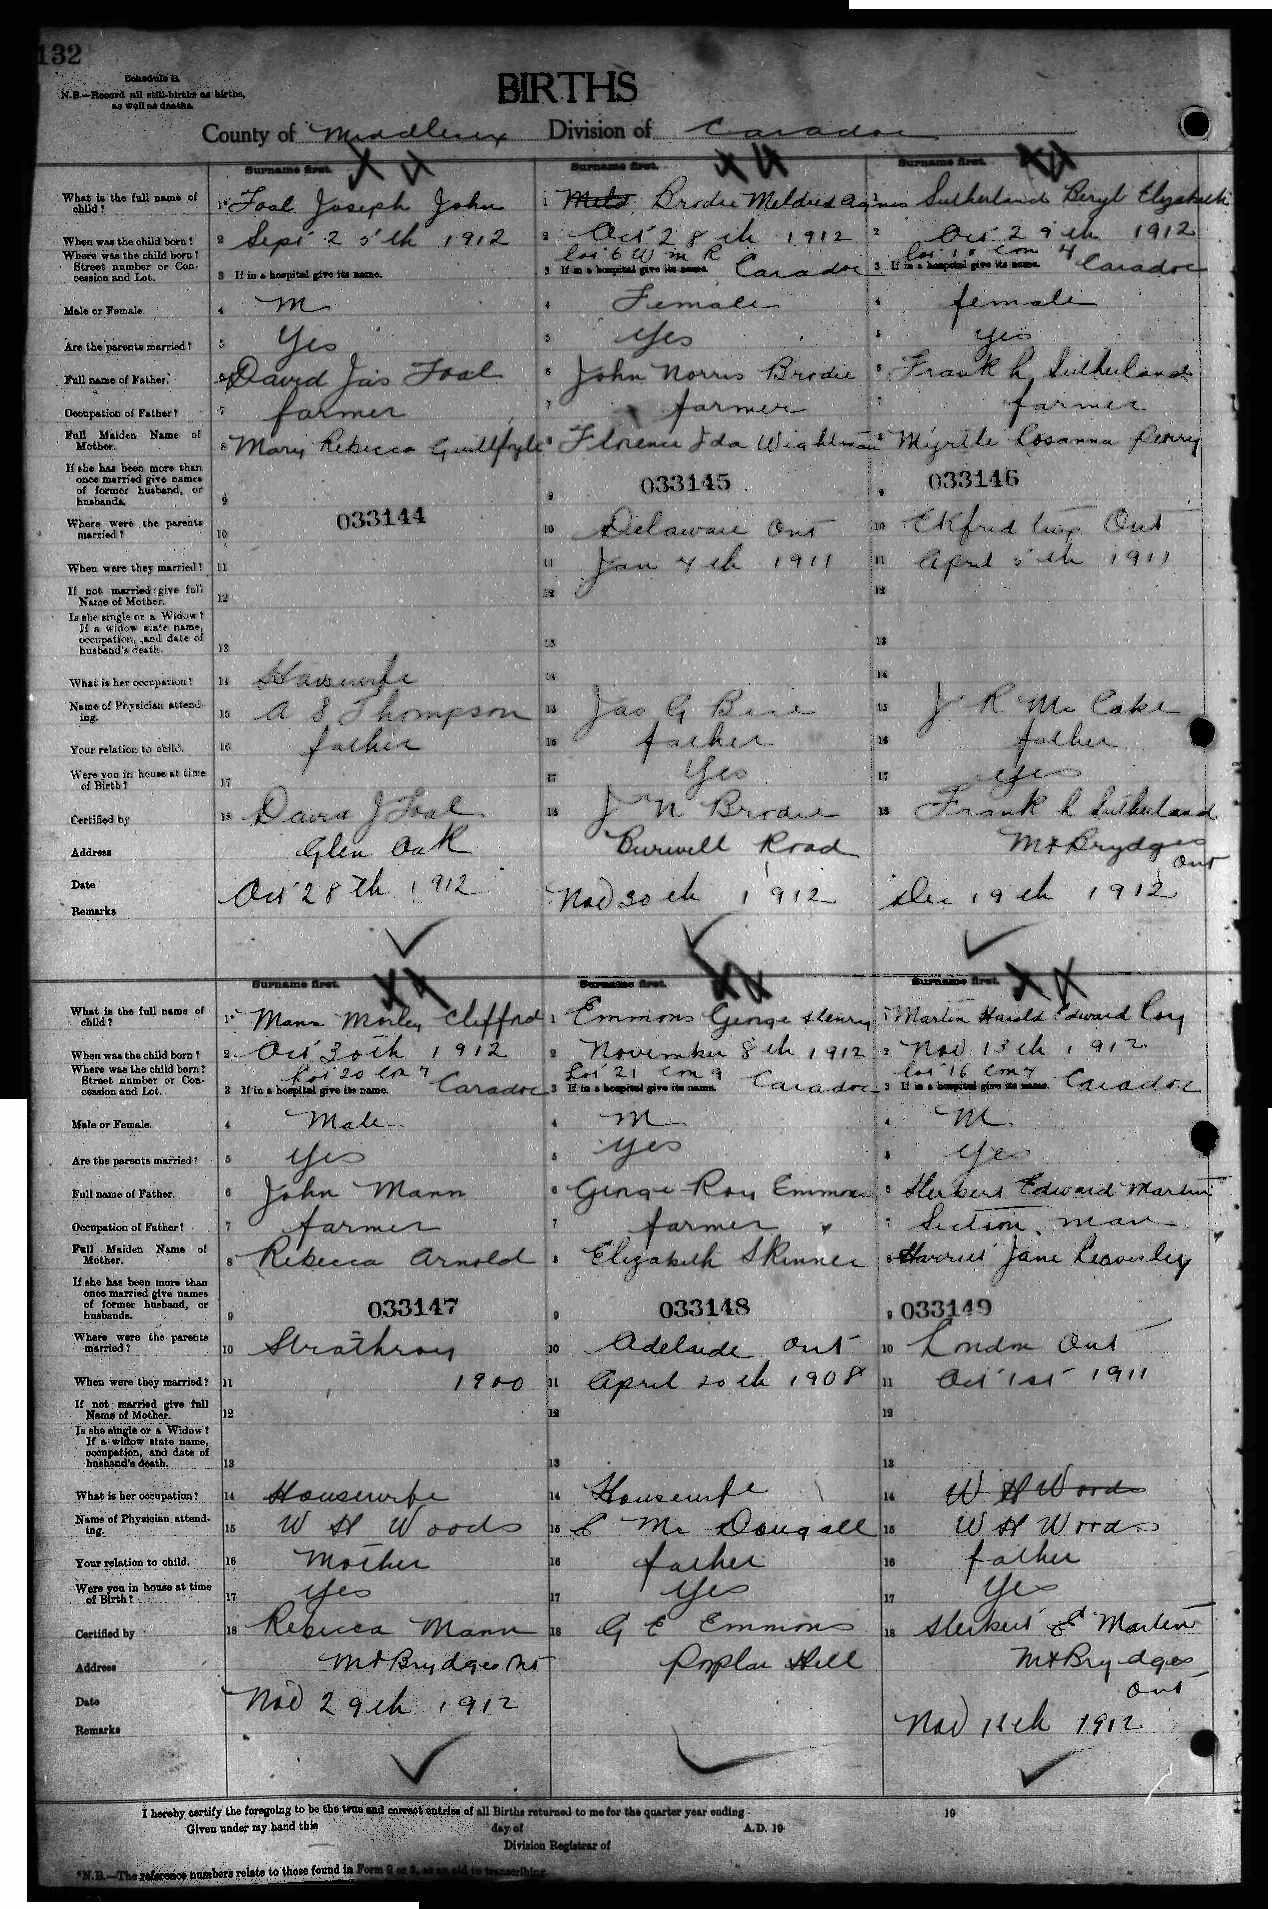 132
Schedule B.
N.B.—Record all still-births as births,
as well as deaths.
BIRTHS
County of Middlesex Division of Caradoc
Surname first. Surname first. Surname first.
What is the full name of child? 1 Toal Joseph John 1 Brodie Meldred Agnes 1 Sutherland Beryl Elizabeth
When was the child born? 2 Sept 25th 1912 2 Oct 28th 1912 2 Oct 29th 1912
Where was the child born? Street number or Concession and Lot. 3 If in a hospital give its name. 3 Lot 6 W M R If in a hospital give its name. Caradoc 3 If in a hospital give its name. Con 4 Caradoc
Male or Female. 4 M 4 Female 4 female
Are the parents married? 5 Yes 5 Yes 5 Yes
Full name of Father. 6 David Jas Toal 6 John Norris Brodie 6 Frank L Sutherland
Occupation of Father? 7 farmer 7 farmer 7 farmer
Full Maiden Name of Mother. 8 Mary Rebecca Guilfoyle 8 Florence Ida Wightman 8 Myrtle Rosanna Perry
If she has been more than once married give names of former husband, or husbands. 9 9 033145 9 033146
Where were the parents married? 10 033144 10 Delaware Ont 10 Ekfrid twp Ont
When were they married? 11 11 Jan 4th 1911 11 April 5th 1911
If not married give full Name of Mother. 12 12 12
Is she single or a Widow? If a widow state name, occupation, and date of husband's death. 13 13 13
What is her occupation? 14 Housewife 14 14
Name of Physician attending. 15 A S Thompson 15 Jas G 15 J R Mc Cabe
Your relation to child. 16 father 16 father 16 father
Were you in house at time of Birth? 17 17 Yes 17 yes
Certified by 18 David J Toal 18 J N Brodie 18 Frank L Sutherland
Address Glen Oak Burwell Road Mt Brydges Ont
Date Oct 28th 1912 Nov 30th 1912 Dec 19th 1912
Remarks
Surname first. Surname first. Surname first.
What is the full name of child? 1 Mann Morley Clifford 1 Emmons George Henry 1 Martin Harold Edward Roy
When was the child born? 2 Oct 30th 1912 2 November 8th 1912 2 Nov 13th 1912
Where was the child born? Street number or Concession and Lot. 3 Lot 20 Con 7 If in a hospital give its name. Caradoc 3 Lot 21 Con 9 If in a hospital give its name. Caradoc 3 Lot 16 Con 7 If in a hospital give its name. Caradoc
Male or Female. 4 Male 4 M 4 M
Are the parents married? 5 Yes 5 Yes 5 Yes
Full name of Father. 6 John Mann 6 George Roy Emmons 6 Herbert Edward Martin
Occupation of Father? 7 farmer 7 farmer 7 Section man
Full Maiden Name of Mother. 8 Rebecca Arnold 8 Elizabeth Skinner 8 Harriet Jane
If she has been more than once married give names of former husband, or husbands. 9 033147 9 033148 9 033149
Where were the parents married? 10 Strathroy 10 Adelaide Ont 10 London Ont
When were they married? 11 1900 11 April 20th 1908 11 Oct 1st 1911
If not married give full Name of Mother. 12 12 12
Is she single or a Widow? If a widow state name, occupation, and date of husband's death. 13 13 13
What is her occupation? 14 Housewife 14 Housewife 14 W H Woods
Name of Physician attending. 15 W H Woods 15 Mc Dougall 15 W H Woods
Your relation to child. 16 Mother 16 father 16 father
Were you in house at time of Birth? 17 Yes 17 Yes 17 Yes
Certified by 18 Rebecca Mann 18 G E Emmons 18 Herbert E Martin
Address Mt Brydges Ont Poplar Hill Mt Brydges Ont
Date Nov 29th 1912 Nov 1912
Remarks
I hereby certify the foregoing to be the true and correct entries of all Births returned to me for the quarter year ending 19
Given under my hand this day of A.D. 19
Division Registrar of
*N.B.—The reference numbers relate to those found in Form 2 or 3, as an aid to transcribing.